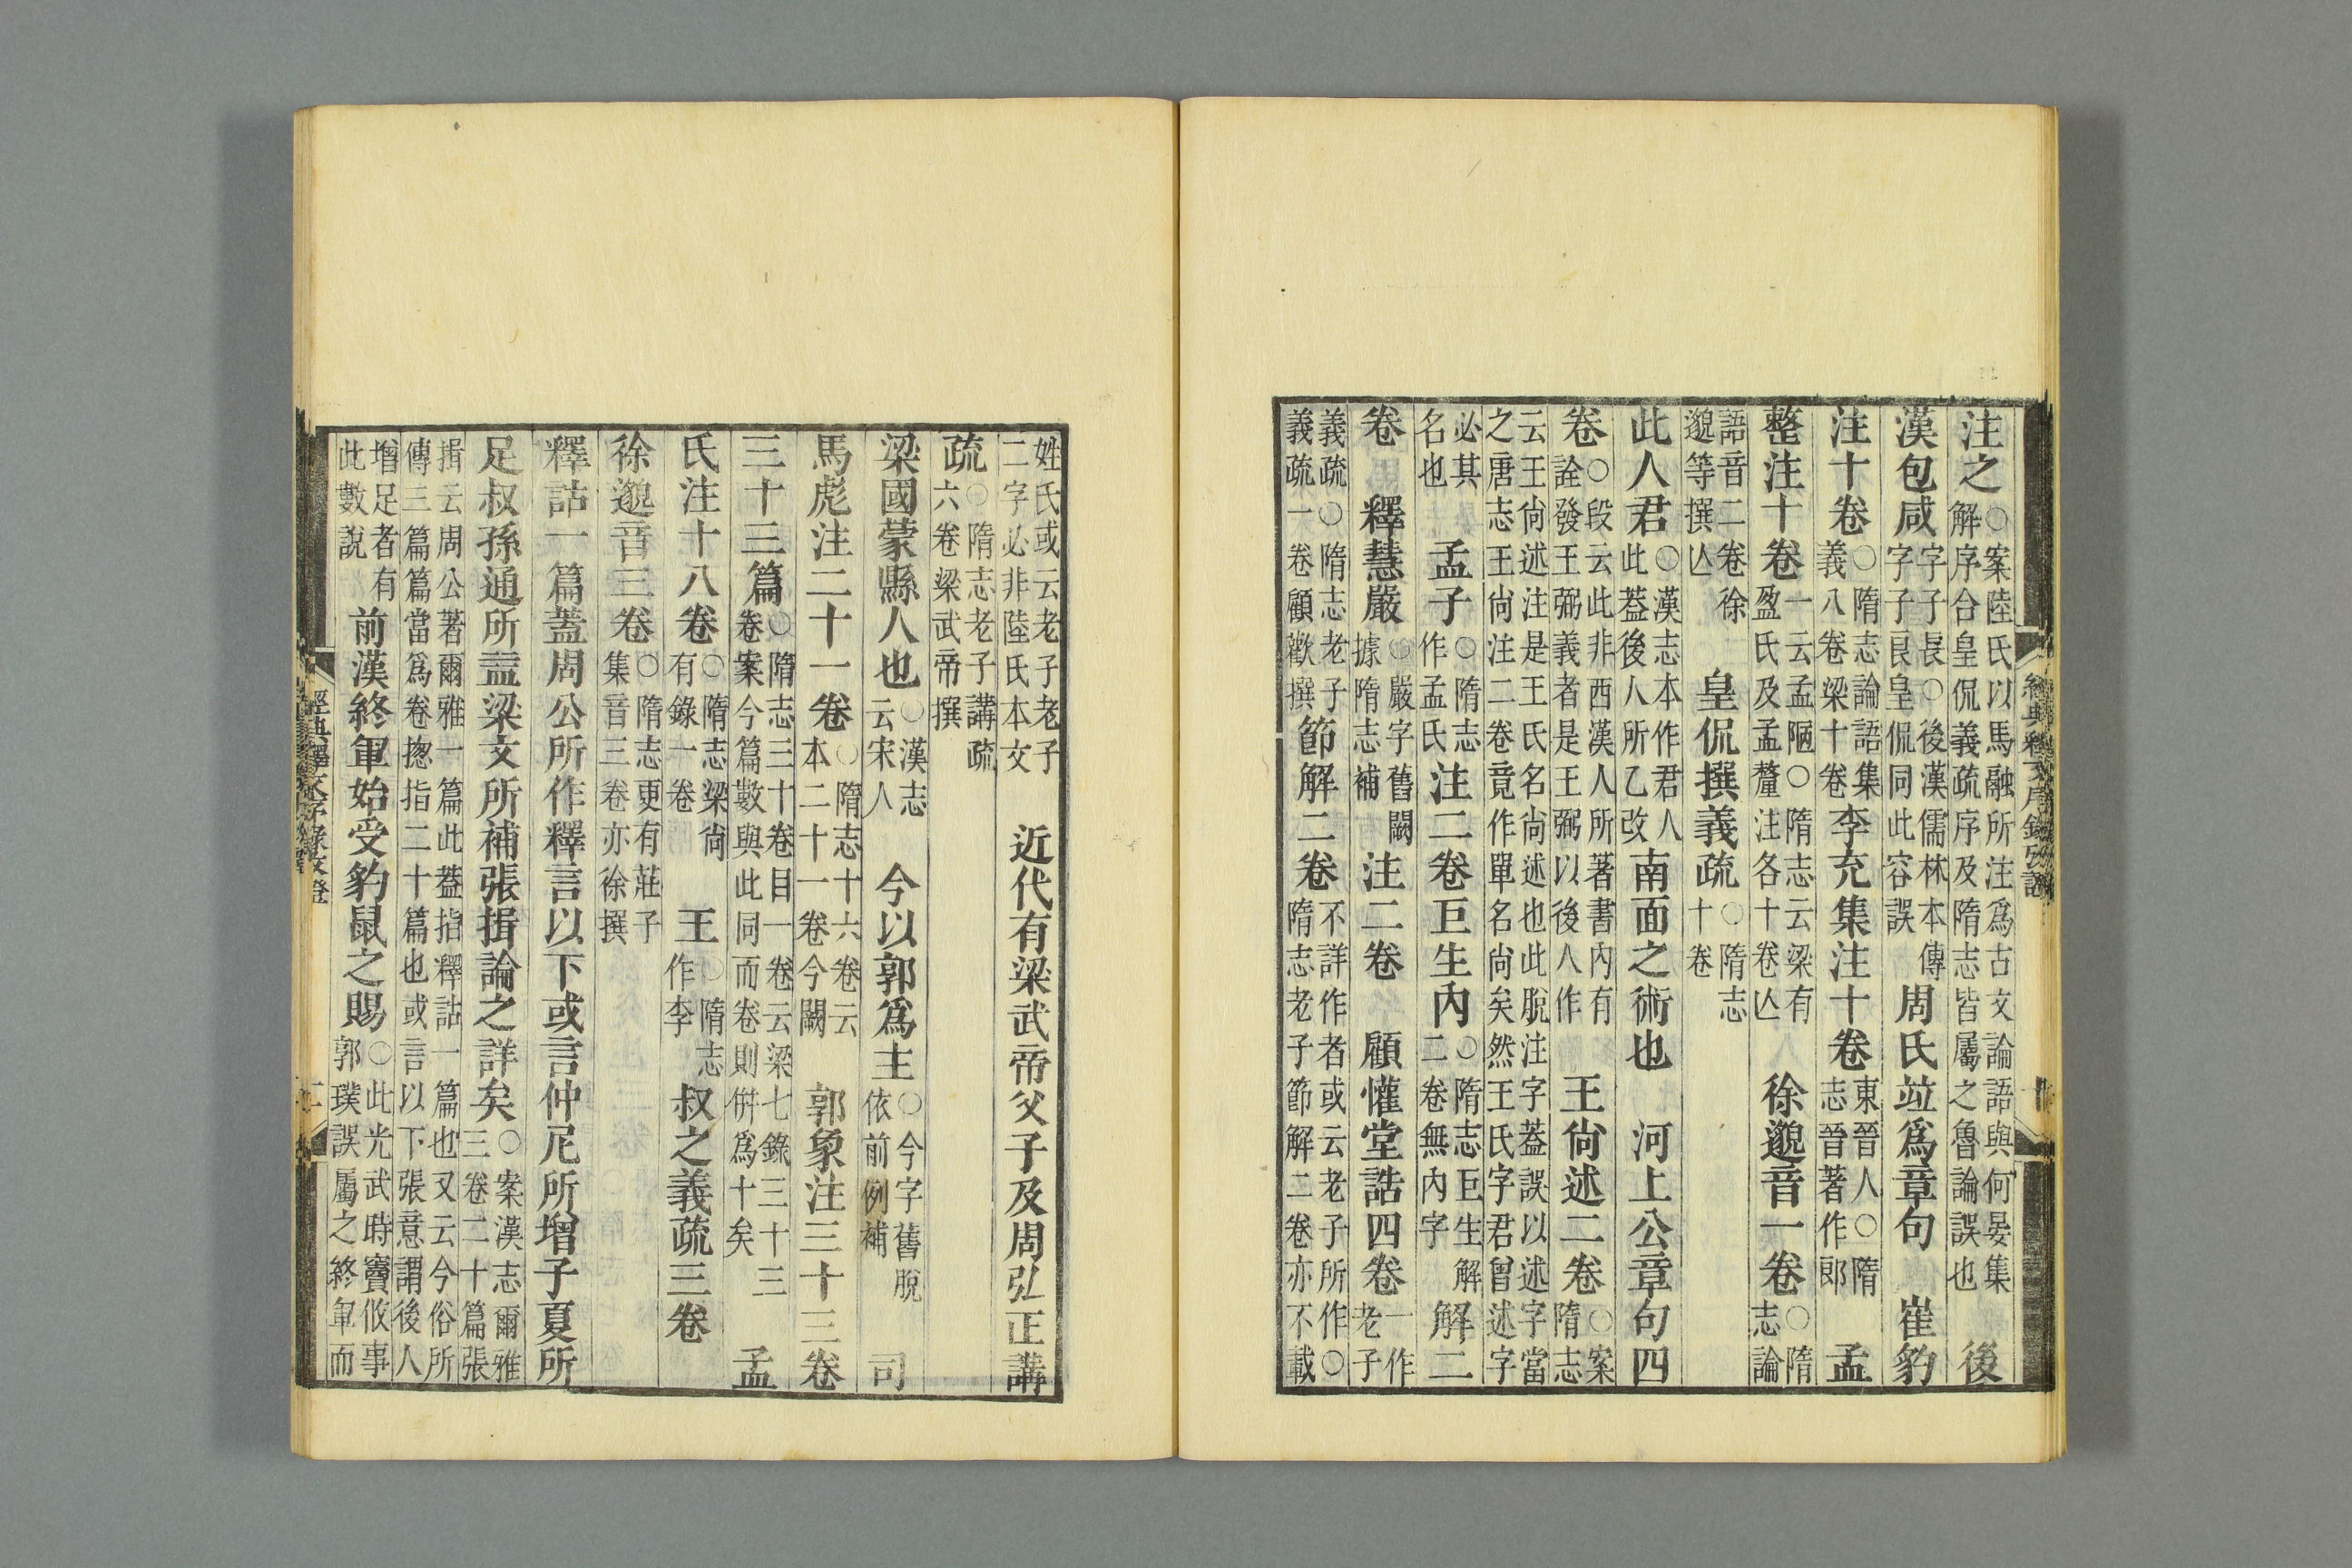 注之○案陸氏以馬融所注爲古文論語與何晏集解序合皇侃義疏序及隋志皆屬之魯論誤也 後
漢包咸字子長○後漢儒林本傳字子良皇侃同此容誤 周氏竝爲章句 崔豹
注十卷○隋志論語集義八卷梁十卷李充集注十卷東晉人○隋志晉著作郎 孟
整注十卷一云孟陋○隋志云梁有盈氏及孟釐注各十卷亾 徐邈音一卷○隋志論
語音二卷徐邈等撰亾 皇侃撰義疏○隋志十卷
此人君○漢志本作君人此葢後人所乙改南面之術也 河上公章句四
卷○段云此非西漢人所著書內有詮發王弼義者是王弼以後人作 王尙述二卷○案隋志
云王尙述注是王氏名尙述也此脫注字葢誤以述字當之唐志王尙注二卷竟作單名尙矣然王氏字君曾述字
必其名也 孟子○隋志作孟氏注二卷巨生內○隋志巨生解二卷無內字解二
卷 釋慧嚴○嚴字舊闕據隋志補注二卷 顧懽堂誥四卷一作老子
義疏○隋志老子義疏一卷顧歡撰節解二卷不詳作者或云老子所作○隋志老子節解二卷亦不載
姓氏或云老子老子二字必非陸氏本文 近代有梁武帝父子及周弘正講
疏○隋志老子講疏六卷梁武帝撰
梁國蒙縣人也○漢志云宋人 今以郭爲主○今字舊脫依前例補 司
馬彪注二十一卷○隋志十六卷云本二十一卷今闕 郭象注三十三卷
三十三篇○隋志三十卷目一卷云梁七錄三十三卷案今篇數與此同而卷則倂爲十矣 孟
氏注十八卷○隋志梁尙有錄一卷 王○隋志作李叔之義疏三卷
徐邈音三卷○隋志更有莊子集音三卷亦徐撰
釋詁一篇葢周公所作釋言以下或言仲尼所增子夏所
足叔孫通所益梁文所補張揖論之詳矣○案漢志爾雅三卷二十篇張
揖云周公著爾雅一篇此葢指釋詁一篇也又云今俗所傳三篇篇當爲卷揔指二十篇也或言以下張意謂後人
增足者有此數說 前漢終軍始受豹鼠之賜○此光武時竇攸事郭璞誤屬之終軍而